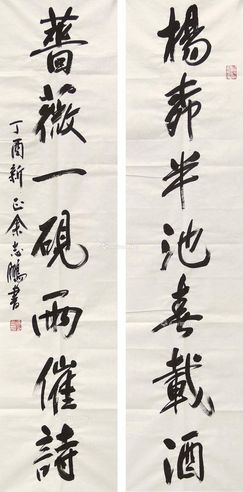 楊半池載酒
薔薇一硯雨催詩
丁酉新正余志鵬書